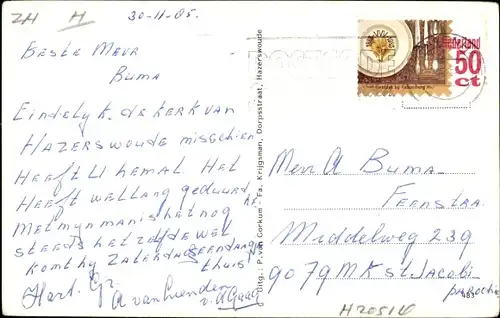 ZH H
30-11-85.
Beste Mevr
Buma
Eindelyk de kerk van
Hazerswoude misschien
Heeft U hem al. Het
Heeft wel lang geduurd
Met myn man is het nog
steeds het zelfde wel
komt hy Zaterdags en dangs
thuis
Hart. Gr.
A van
v. d Gaag
Uitg.: P. van Gorkum - Fa. Krijgsman, Dorpsstraat, Hazerswoude
Nederland
50
ct
Mevr A Buma-
Feenstra
Middelweg 239
9079 MK St Jacobi
parochie
483
H20516